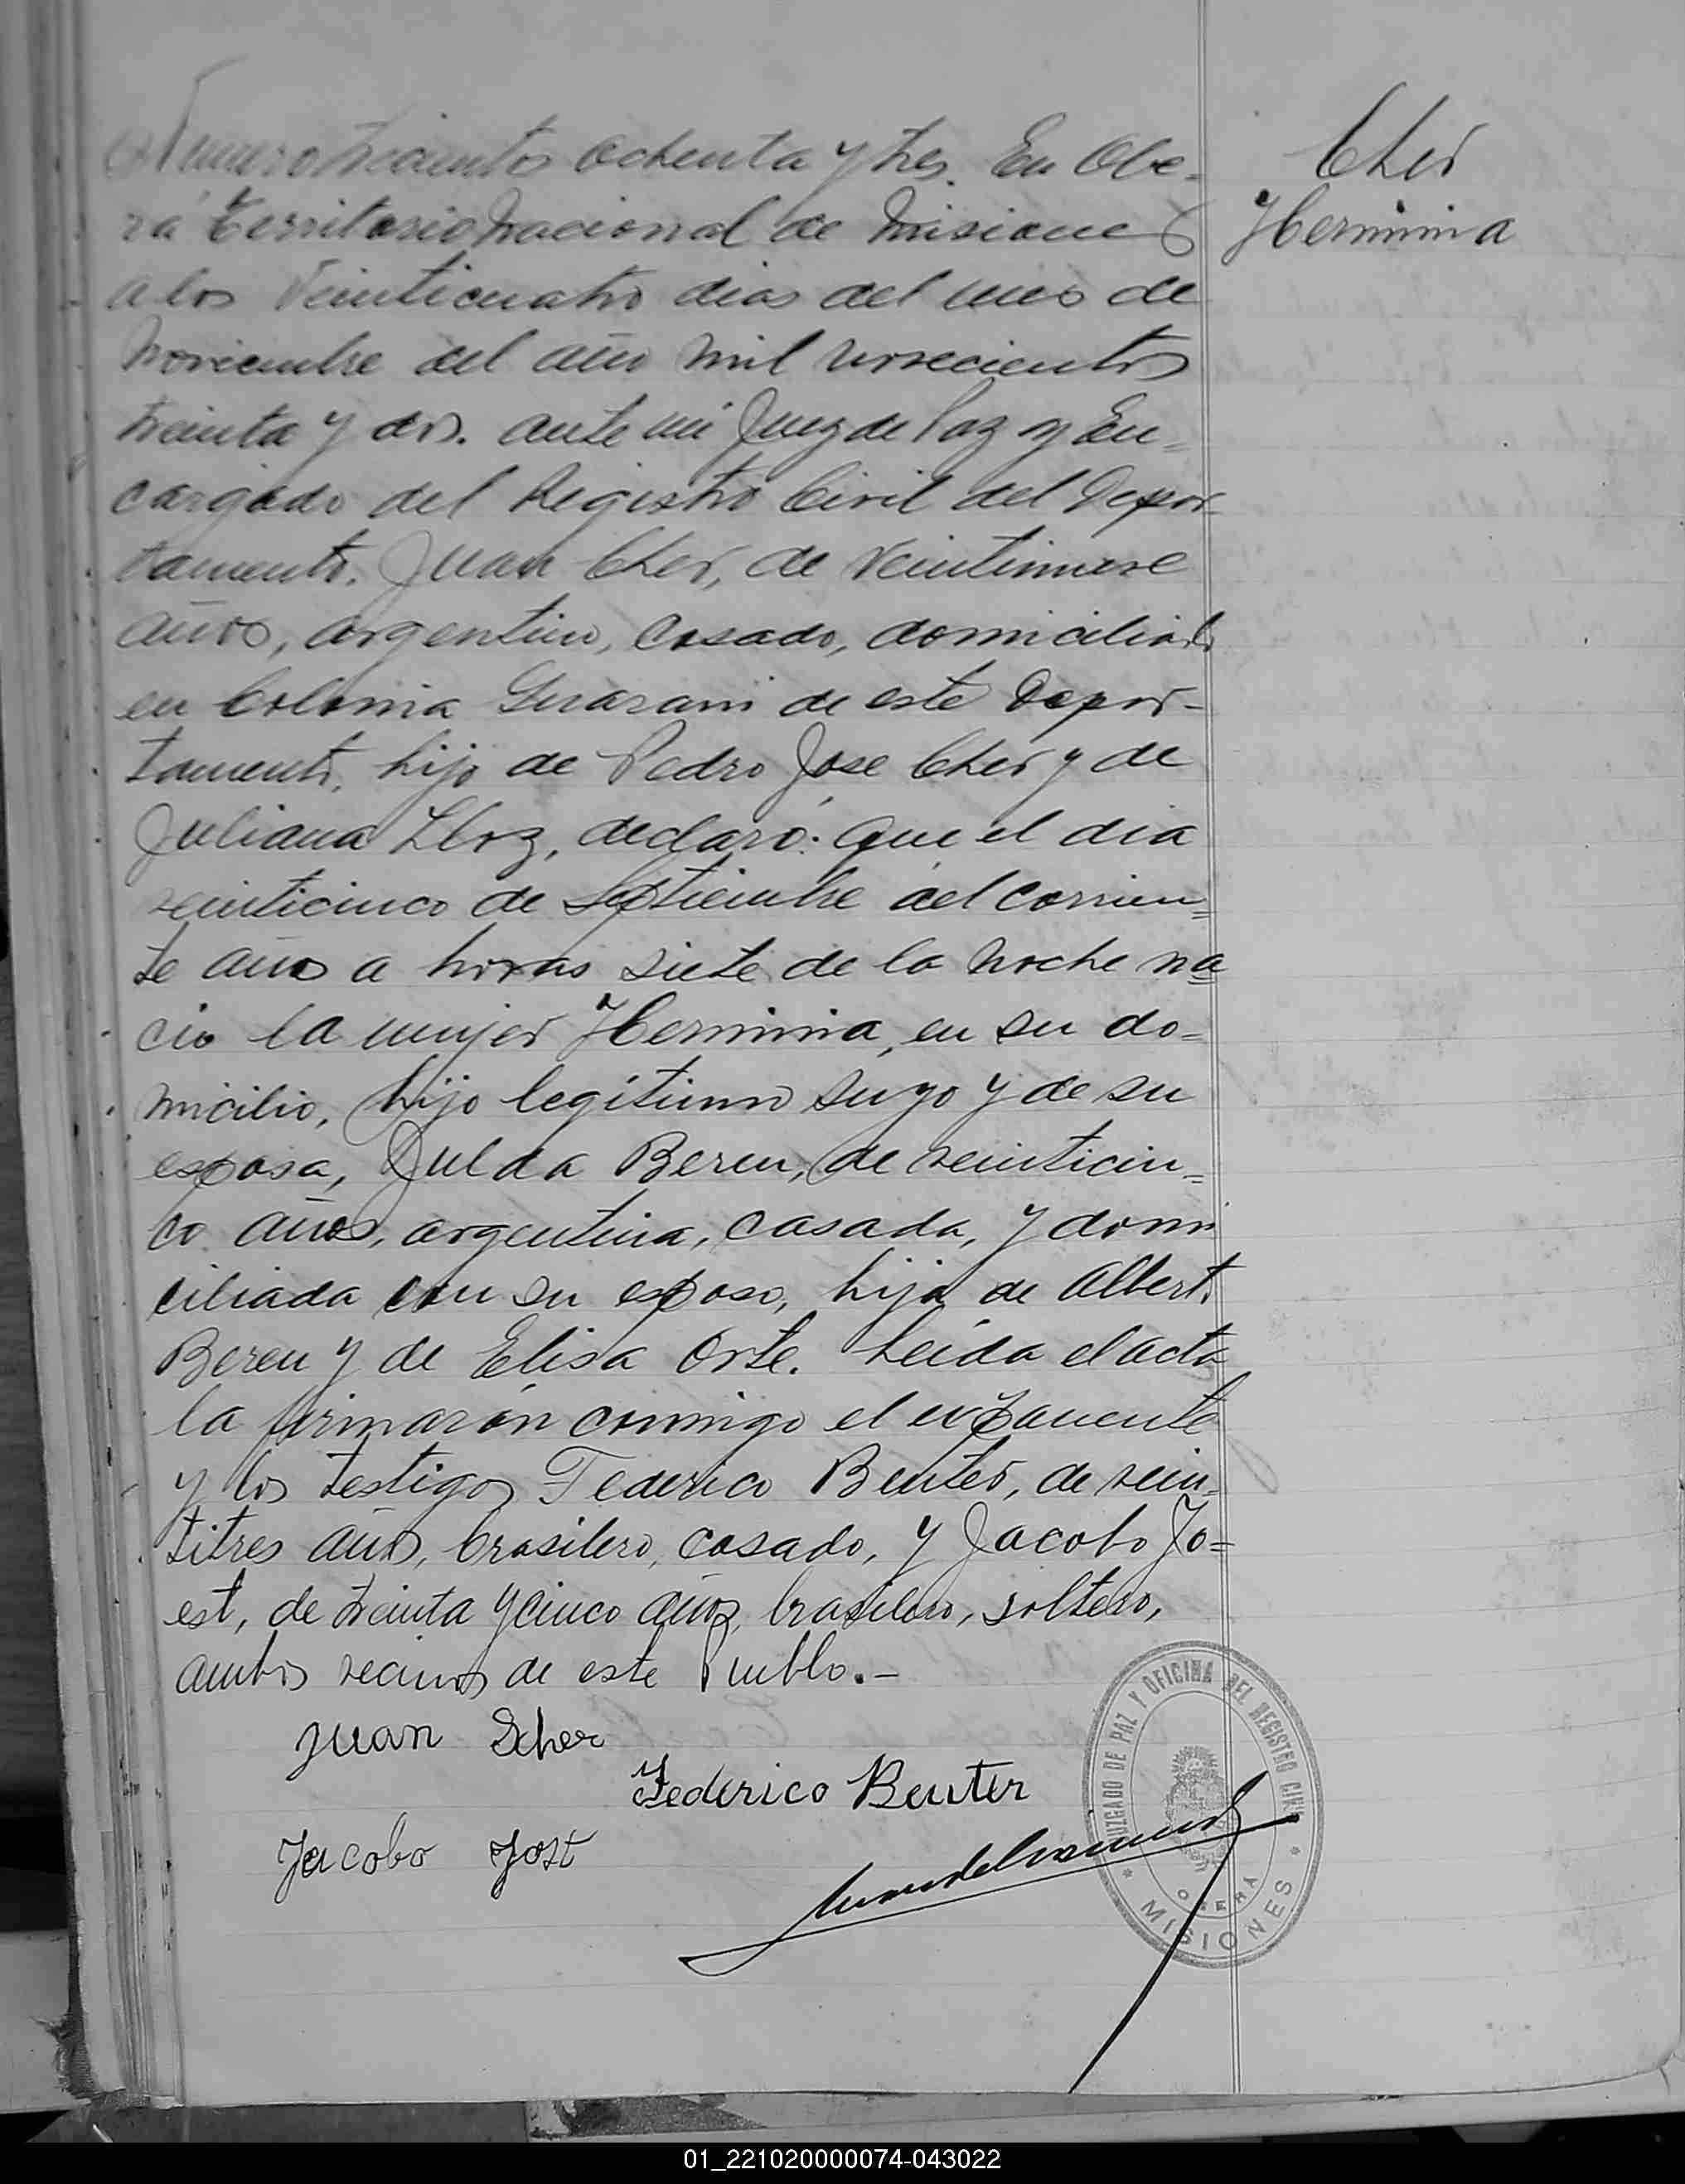 Numero trescientos ochenta y tres. En Obe-
rá Territorio Nacional de Misiones
a los Veinticuatro dias del mes de
Noviembre del año mil novecientos
treinta y dos. ante mi Juez de Paz y En-
cargado del Registro Civil del Depar-
tamento. Juan Cher, de veintinueve
años, argentino, casado, domiciliado
en Colonia Guarani de este Depar-
tamento, hijo de Pedro Jose Cher y de
Juliana, declaró: que el dia
veinticinco de Septiembre del corrien-
te año a horas siete de la noche na
cio la mujer Herminia, en su do-
micilio, hijo legítimo suyo y de su
esposa, Julda Beren, de veinticin-
co años, argentina, casada, y domi
ciliada con su esposo, hija de Alberto
Beren y de Elisa Orte. Leída el acta
la firmarón conmigo el exponente
y los testigos Federico Benter, de vein-
titres años, brasilero, casado, y Jacobo Jo-
est, de treinta y cinco años, brasilero, soltero,
ambos vecinos de este Pueblo.-
Cher
Herminia
Juan Scher
Federico Benter
Jacobo Jost
JUZGADO DE PAZ Y OFICINA DEL REGISTRO CIVIL
OBERÁ
* MISIONES *
01_221020000074-043022